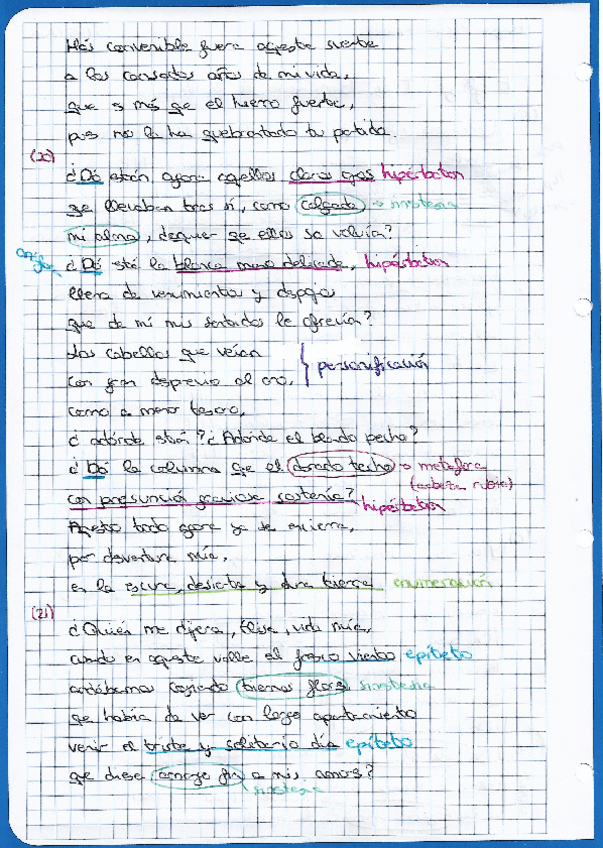 Más convenible fuera aqueste suerte
a los cansados años de mi vida,
que es más que el hierro fuerte,
pues no la ha quebrantado tu partida.
(20)
¿Dó están agora aquellos claros ojos hipérbaton
que llevaban tras sí, como colgada → sinestesia
mi alma, doquier que ellos se volvían?
anáfora ¿Dó está la blanca mano delicada, hipérbaton
llena de vencimientos y despojos
que de mí mis sentidos le ofrecían?
Los cabellos que veían
con gran desprecio al oro, } personificación
como a menor tesoro,
¿adónde están? ¿Adónde el blando pecho?
¿Dó la columna que el dorado techo → metáfora
(cabeza rubia)
con presunción graciosa sostenía? hipérbaton
Aquesto todo agora ya se encierra,
por desventura mía,
en la escura, desierta y dura tierra enumeración
(21)
¿Quién me dijera, Elisa, vida mía,
cuando en aqueste valle al fresco viento epíteto
andábamos cogiendo tiernas flores sinestesia
que había de ver con largo apartamiento
venir el triste y solitario día epíteto
que diese amargo fin a mis amores?
sinestesia